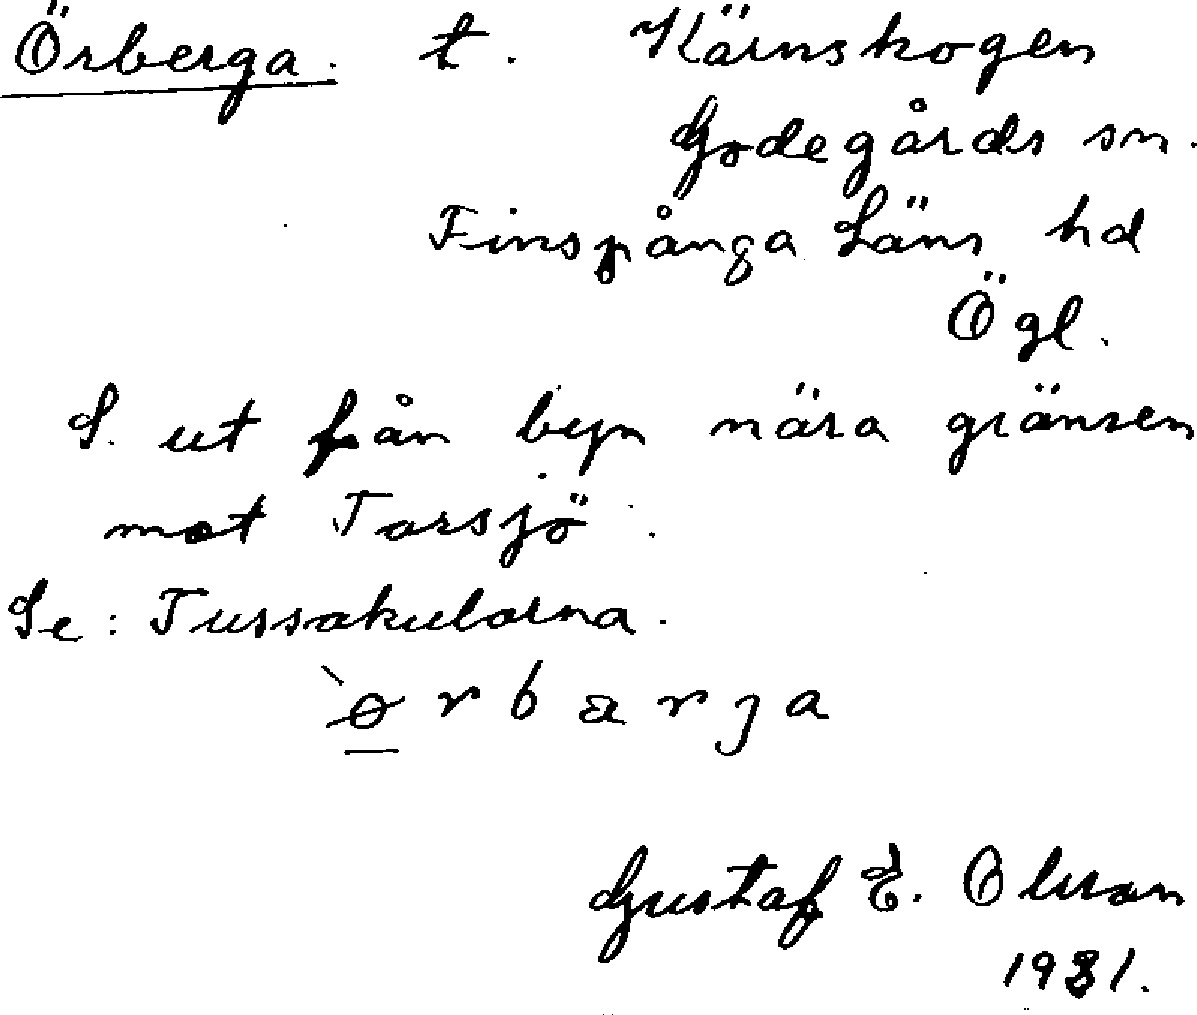 Örberga. t. Kärnskogen
Godegårds sn.
Finspånga Läns hd
Ögl.
S. ut från byn nära gränsen
mot Torsjö.
Se: Tussakularna.
Gustaf E. Olsson